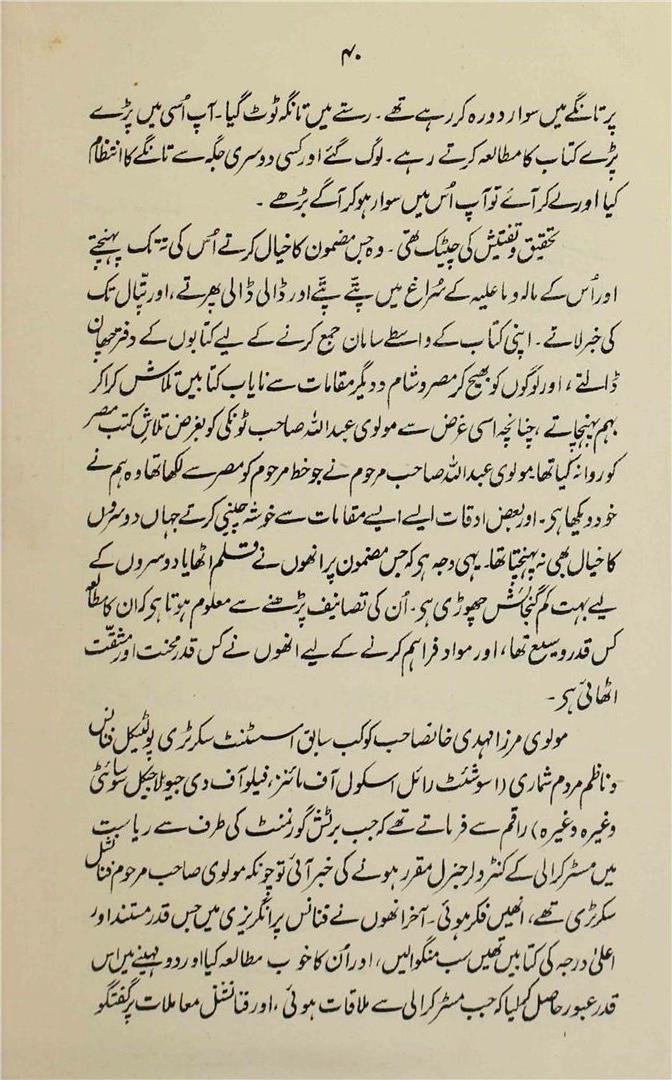 ۴۰
پر تانگے میں سوار دورہ کر رہے تھے۔ رستے میں تانگہ ٹوٹ گیا۔ آپ اُسی میں پڑے
پڑے کتاب کا مطالعہ کرتے رہے۔ لوگ گئے اور کسی دوسری جگہ سے تانگے کا انتظام
کیا اور لے کر آئے تو آپ اُس میں سوار ہو کر آگے بڑھے۔
تحقیق و تفتیش کی چیٹک تھی۔ وہ جس مضمون کا خیال کرتے اُس کی تہ تک پہنچتے
اور اُس کے مالہ و ما علیہ کے سُراغ میں پتّے پتّے اور ڈالی ڈالی پھرتے، اور پتّال تک
کی خبر لاتے۔ اپنی کتاب کے واسطے سامان جمع کرنے کے لیے کتابوں کے دفتر چھان
ڈالتے، اور لوگوں کو بھیج کر مصر و شام و دیگر مقامات سے نایاب کتابیں تلاش کرا کر
بہم پہنچاتے، چنانچہ اسی غرض سے مولوی عبد اللہ صاحب ٹونکی کو بغرض تلاش کتب مصر
کو روانہ کیا تھا۔ مولوی عبد اللہ صاحب مرحوم نے جو خط مرحوم کو مصر سے لکھا تھا وہ ہم نے
خود دیکھا ہی۔ اور بعض اوقات ایسے ایسے مقامات سے خوشہ چینی کرتے جہاں دوسروں
کا خیال بھی نہ پہنچتا تھا۔ یہی وجہ ہی کہ جس مضمون پر انھوں نے قلم اٹھایا دوسروں کے
لیے بہت کم گنجائش چھوڑی ہی۔ اُن کی تصانیف پڑھنے سے معلوم ہوتا ہی کہ ان کا مطالعہ
کس قدر وسیع تھا، اور مواد فراہم کرنے کے لیے انھوں نے کس قدر محنت اور مشقّت
اٹھائی ہی۔
مولوی مرزا مہدی خانصاحب کوکب سابق اسسٹنٹ سکرٹری پولٹیکل فنانس
و ناظم مردم شماری (اسوشئٹ رائل اسکول آف مائنز، فیلو آف دی جیولاجیکل سوسائٹی
وغیرہ وغیرہ) راقم سے فرماتے تھے کہ جب برٹش گورنمنٹ کی طرف سے ریاست
میں مسٹر کرالی کے کنٹرولر جنرل مقرر ہونے کی خبر آئی تو چونکہ مولوی صاحب مرحوم فنانشل
سکرٹری تھے، انھیں فکر ہوئی۔ آخر انھوں نے فنانس پر انگریزی میں جس قدر مستند اور
اعلیٰ درجہ کی کتابیں تھیں سب منگوالیں، اور اُن کا خوب مطالعہ کیا اور دو مہینے میں اس
قدر عبور حاصل کر لیا کہ جب مسٹر کرالی سے ملاقات ہوئی، اور فنانشل معاملات پر گفتگو